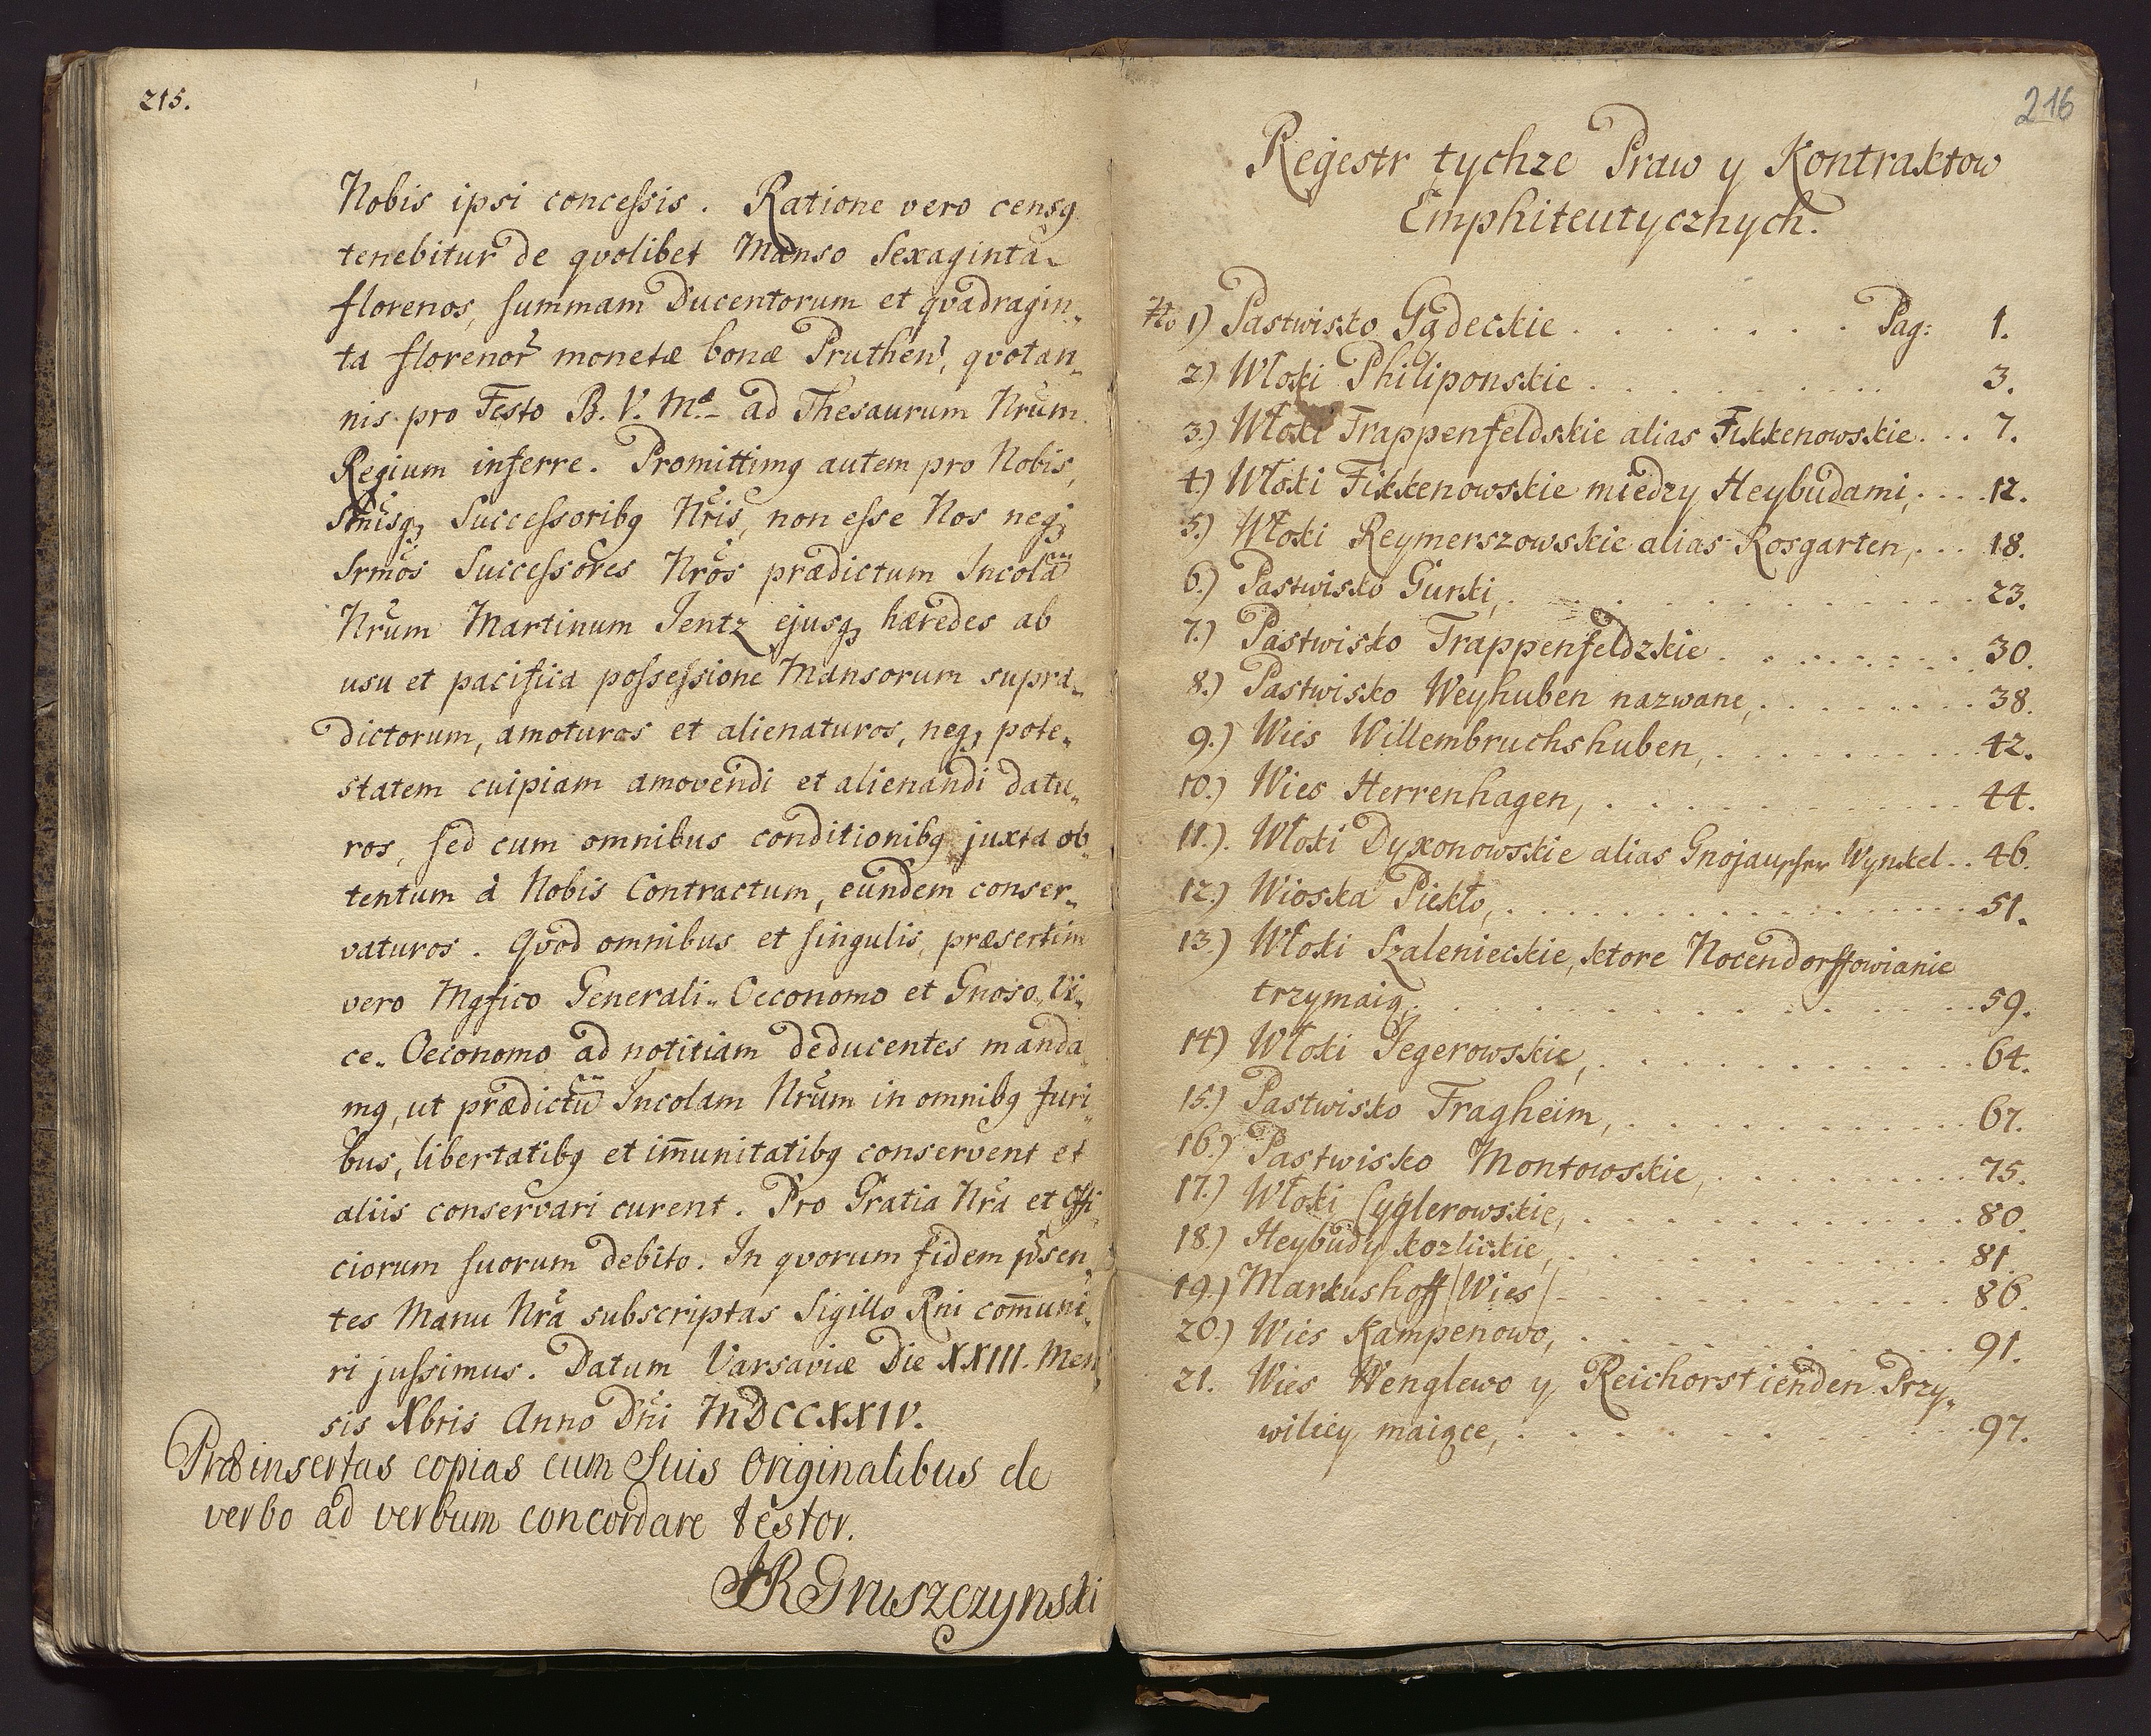 215.
Nobis ipsi concessis. Ratione vero censq
tenebitur de qvolibet Manso Sexaginta
florenos, summam Ducentorum et qvadragin„
ta florenor̃ monetæ bonæ Pruthen̄, qvotan„
nis pro Festo B. V. M. ad Thesaurum Nrũm
Regium inferre. Promittimq autem pro Nobis,
Srmisq, Successoribq Nr̃is, non esse Nos neq,
Srmos Successores Nrõs prædictum Incolã
Nrũm Martinum Jentz ejusq, hæredes ab
usu et pacifica possessione Mansorum supra„
dictorum, amoturos et alienaturos, neq, pote„
statem cuipiam amovendi et alienandi datu„
ros, sed cum omnibus conditionibq juxta ob„
tentum à Nobis Contractum, eundem conser„
vaturos. Qvod omnibus et singulis, præsertim
vero Mgfico Generali„ Oeconomo et Gnoso„ Vi„
ce„ Oeconomo ad notitiam deducentes manda„
mq, ut prædictũ Incolam Nrũm in omnibq Juri„
bus, libertatibq et im̄unitatibq conservent et
aliis conservari curent. Pro Gratia Nrã et Offi„
ciorum suorum debito. In qvorum fidem p̃sen„
tes Manu Nrã subscriptas Sigillo Rni com̄uni„
ri jussimus. Datum Varsaviæ Die XXIII. Men„
sis Xbris Anno Dñi MDCCXXIV.
Præinsertas copias cum Suis Originalibus de
verbo ad verbum concordare testor.
JRGruszczynski
216
Regestr tychze Praw y Kontraktow
Emphiteutycznych.
No 1) Pastwisko Gądeckie . . . . . . . Pag: 1.
2) Włoki Philiponskie . . . . . . . . 3.
3.) Włoki Trappenfeldskie alias Fikkenowskie . . . 7.
4.) Włoki Fikkenowskie miedzy Heybudami, . . . . 12.
5.) Włoki Reymerszowskie alias Rosgarten, . . . 18.
6.) Pastwisko Gurki, . . . . . . . . . . 23.
7.) Pastwisko Trappenfeldzkie . . . . . . . . 30.
8.) Pastwisko Weyhuben nazwane, . . . . . . . . 38.
9.) Wies Willembruchshuben, . . . . . . . . 42.
10.) Wies Herrenhagen, . . . . . . . . . . 44.
11.). Włoki Dyxonowskie alias Gnojauscher Wynkel . . 46.
12.) Wioska Piekło, . . . . . . . . . . . . 51.
13.) Włoki Szalenieckie, ktore Nocendorffowianie
trzymaią, . . . . . . . . . . . . 59.
14) Włoki Jegerowskie, . . . . . . . . . . 64.
15.) Pastwisko Fragheim, . . . . . . . . . . 67.
16.) Pastwisko Montowskie, . . . . . . . . . 75.
17.) Włoki Cyglerowskie, . . . . . . . . . . 80.
18.) Heybudy kozlickie, . . . . . . . . . . 81.
19.) Markushoff /Wies/ . . . . . . . . . . 86.
20.) Wies Kampenowo, . . . . . . . . . . 91.
21. Wies Wenglewo y Reichorst ienden Przy„
wiliey maiące, . . . . . . . . . . 97.